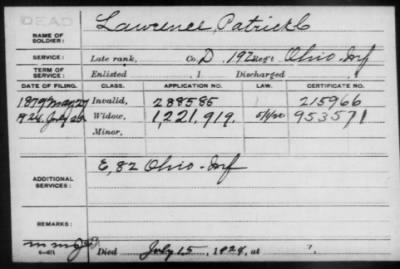 DEAD
NAME OF SOLDIER: Lawrence, Patrick C
SERVICE: Late rank, Co. D, 192 Reg't Ohio Inf
TERM OF SERVICE: Enlisted , 1 Discharged , 1
DATE OF FILING. CLASS. APPLICATION NO. LAW. CERTIFICATE NO.
1879 May 27 Invalid, 288585 215966
1924 July 26 Widow, 1,221,919 953571
Minor,
ADDITIONAL SERVICES: E, 82 Ohio Inf
REMARKS:
Died July 15, 1924, at ?